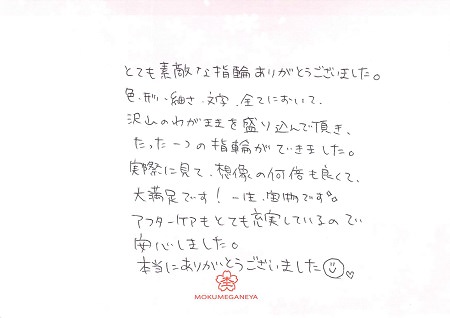 とても素敵な指輪ありがとうございました。
色・形い・細さ・文字・全てにおいて、
沢山のわがままを盛り込んで頂き、
たった一つの指輪ができました。
実際に見て、想像の何倍も良くて、
大満足です！一生、宝物です。
アフターケアもとても充実しているので
安心しました。
本当にありがとうございました
MOKUMEGANEYA